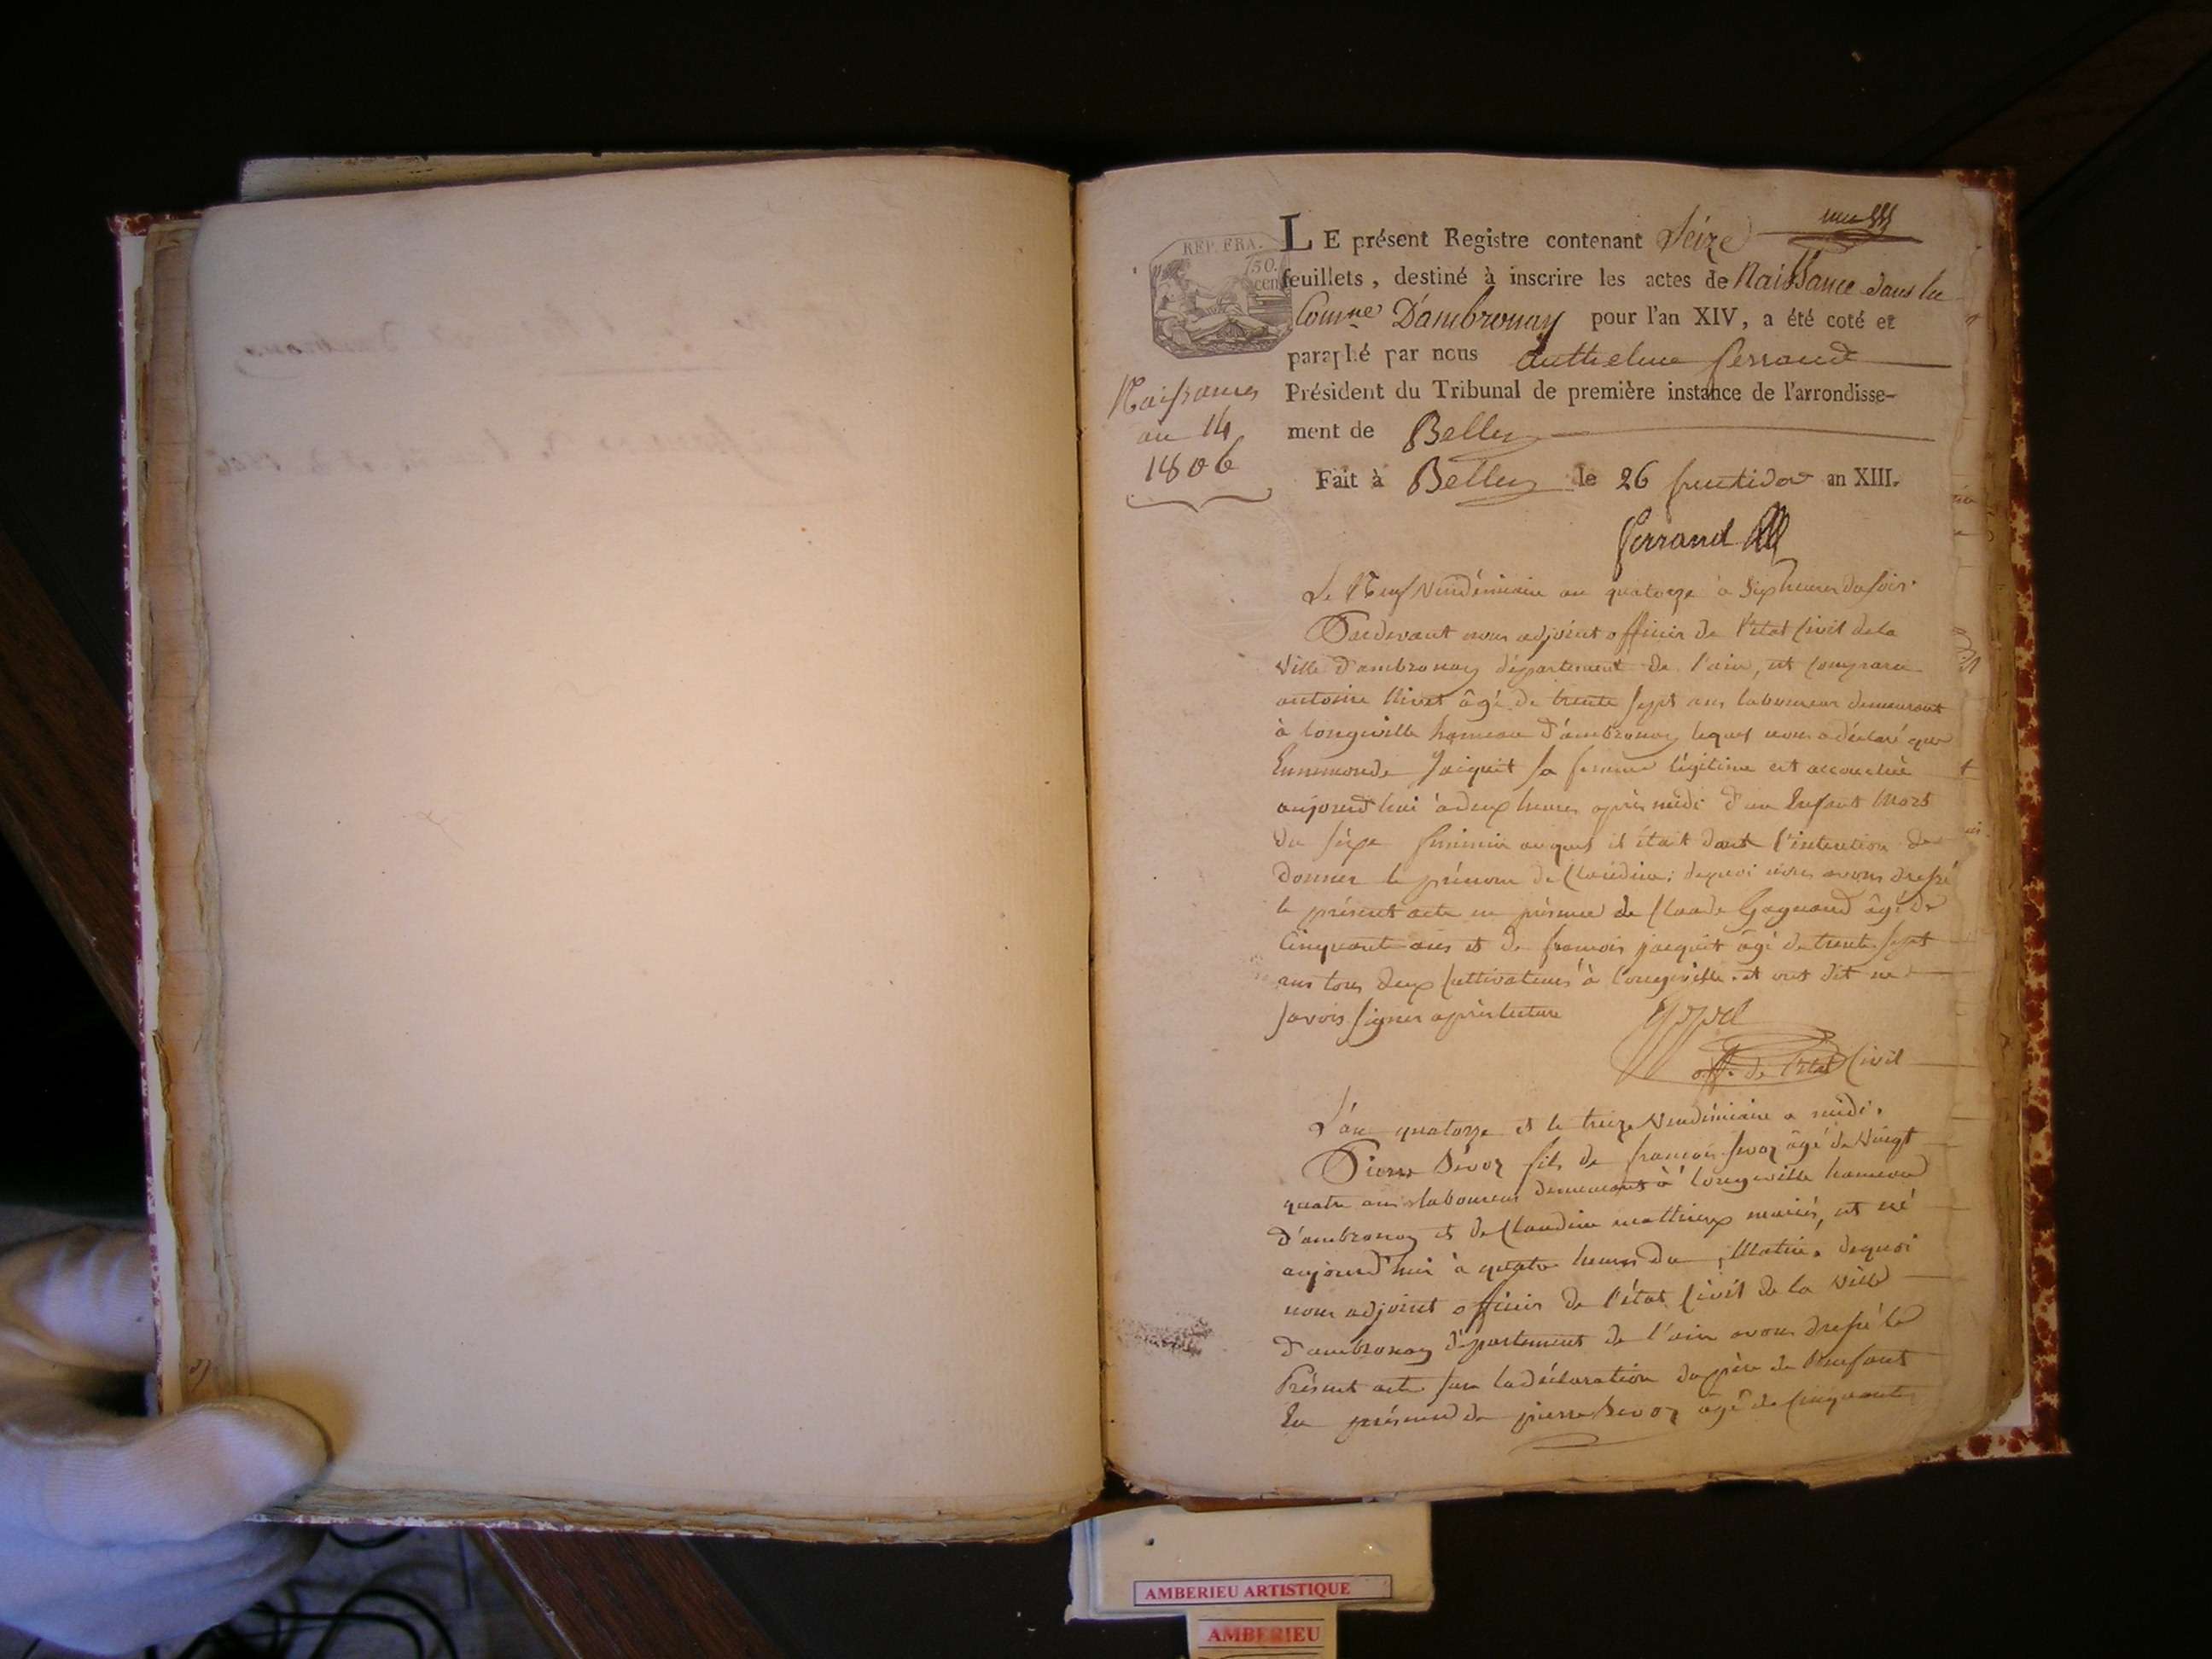 REP. FRA.
50.
cen
LE présent Registre contenant Seize
feuillets, destiné à inscrire les actes de Naissance dans la
Comne D'ambronay pour l'an XIV, a été coté et
paraphé par nous Anthelme ferrand
Président du Tribunal de première instance de l'arrondisse-
ment de Belley
Fait à Belley le 26 fructidor an XIII.
Naissances
an 14
1806
ferrand
Le Neuf Vendémiaire an quatorze à Six heures du soir.
Pardevant nous adjoint officier de l'etat Civil de la
Ville d'ambronay département de l'ain, est comparu
antoine Nivet âgé de trente sept ans laboureur demeurant
à longeville hameau d'ambronay lequel nous a déclaré que
Ennemonde Jacquit sa femme légitime est accouchée
aujourd'hui à deux heures après midi d'un Enfant Mort
du sexe feminin auquel il était dant l'intention de
donner le prénom de Claudine; dequoi nous avons dressé
le présent acte en présence de Claude Gagnaud âgé de
Cinquante ans et de francois jacquit âgé de trente sept
ans tous deux Cultivateurs à Longeville. et ont dit ne
savoir signer après lecture
off. de l'etat Civil
L'an quatorze et le treize Vendémiaire a midi.
Pierre Sévoz fils de francois Sevoz âgé de Vingt
quatre ans laboureur demeurant à longeville hameau
d'ambronay et de Claudine matthieux mariés, est né
aujourd'hui à quatre heures du Matin. dequoi
nous adjoint officier de l'état Civil de la Ville
d'ambronay département de l'ain avons dressé le
Présent acte sur la déclaration du père de l'enfant
En présence de pierre Sevoz âgé de Cinquante
AMBERIEU ARTISTIQUE
AMBERIEU